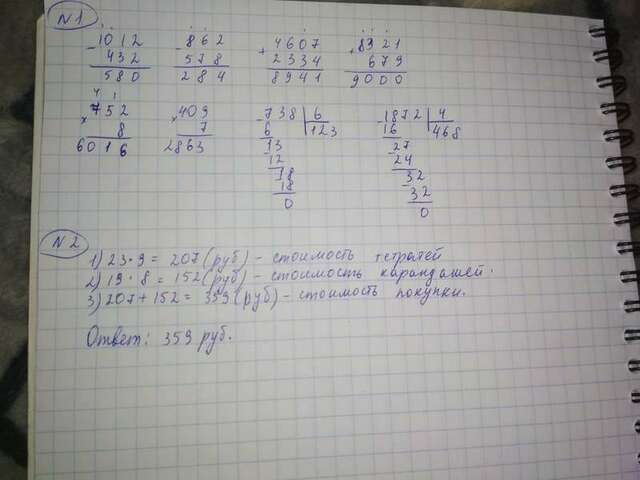 N1
1012 862 4607 8321
- 432 - 578 + 2334 + 679
580 284 8941 9000
4 1
752 409 - 738 6 - 1872 4
× 8 × 7 6 123 16 468
6016 2863 - 13 - 27
12 24
- 18 - 32
18 32
0 0
N2
1) 23·9 = 207 (руб) - стоимость тетралей
2) 19·8 = 152 (руб) - стоимость карандашей.
3) 207 + 152 = 359 (руб) - стоимость покупки.
Ответ: 359 руб.